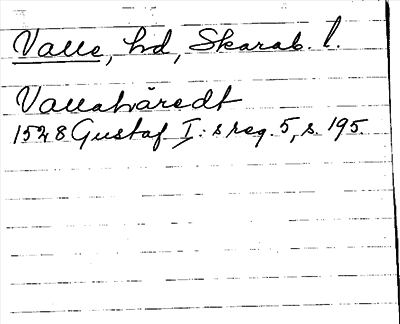 Valle, hd, Skarab. l.
Vallahäredt
1528 Gustaf I:s reg. 5, s. 195.